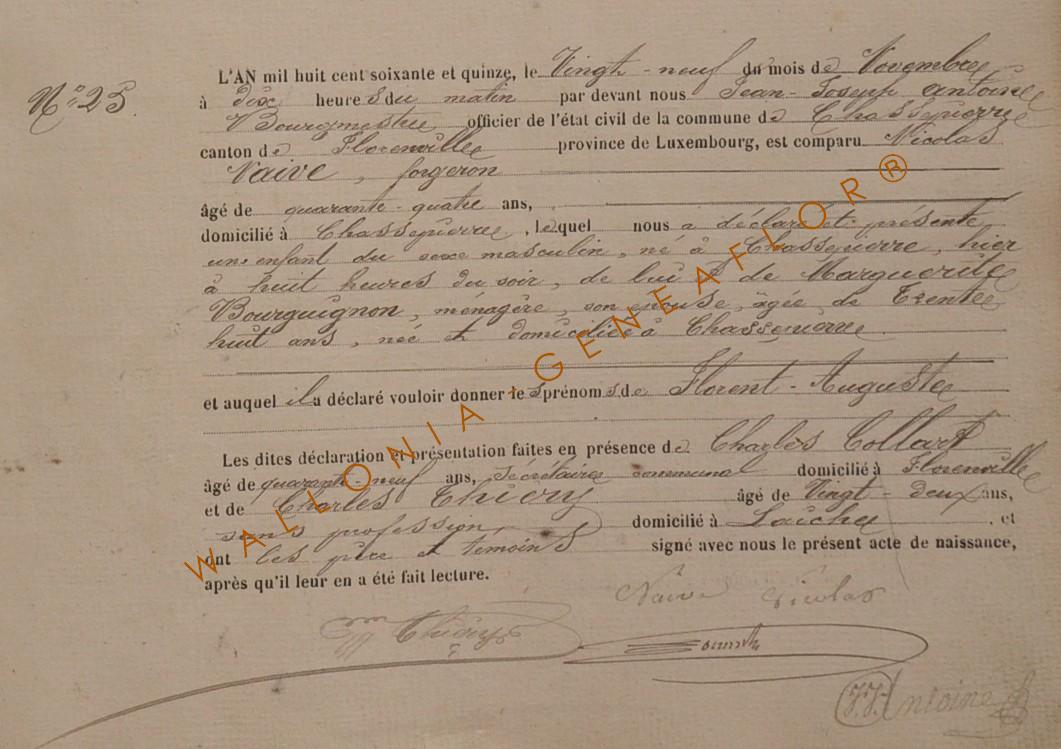 N° 25.
L'AN mil huit cent soixante et quinze, le Vingt-neuf du mois de Novembre
à dix heures du matin par devant nous Jean-Joseph Antoine
Bourgmestre officier de l'état civil de la commune de Chassepierre
canton de Florenville province de Luxembourg, est comparu Nicolas
Naive, forgeron
âgé de quarante-quatre ans,
domicilié à Chassepierre, lequel nous a déclaré et présenté
un enfant du sexe masculin, né à Chassepierre, hier
à huit heures du soir, de lui & de Marguerite
Bourguignon, ménagère, son épouse, âgée de Trente
huit ans, née et domiciliée à Chassepierre
et auquel il a déclaré vouloir donner les prénoms de Florent-Auguste
Les dites déclaration et présentation faites en présence de Charles Collart
âgé de quarante-neuf ans, secrétaire communal domicilié à Florenville
et de Charles Thiéry âgé de Vingt-deux ans,
sans profession, domicilié à Laiche, et
ont les père et témoins signé avec nous le présent acte de naissance,
après qu'il leur en a été fait lecture.
Naive Nicolas
Thiéry
J.J. Antoine
WALLONIA-GENEAFLOR®